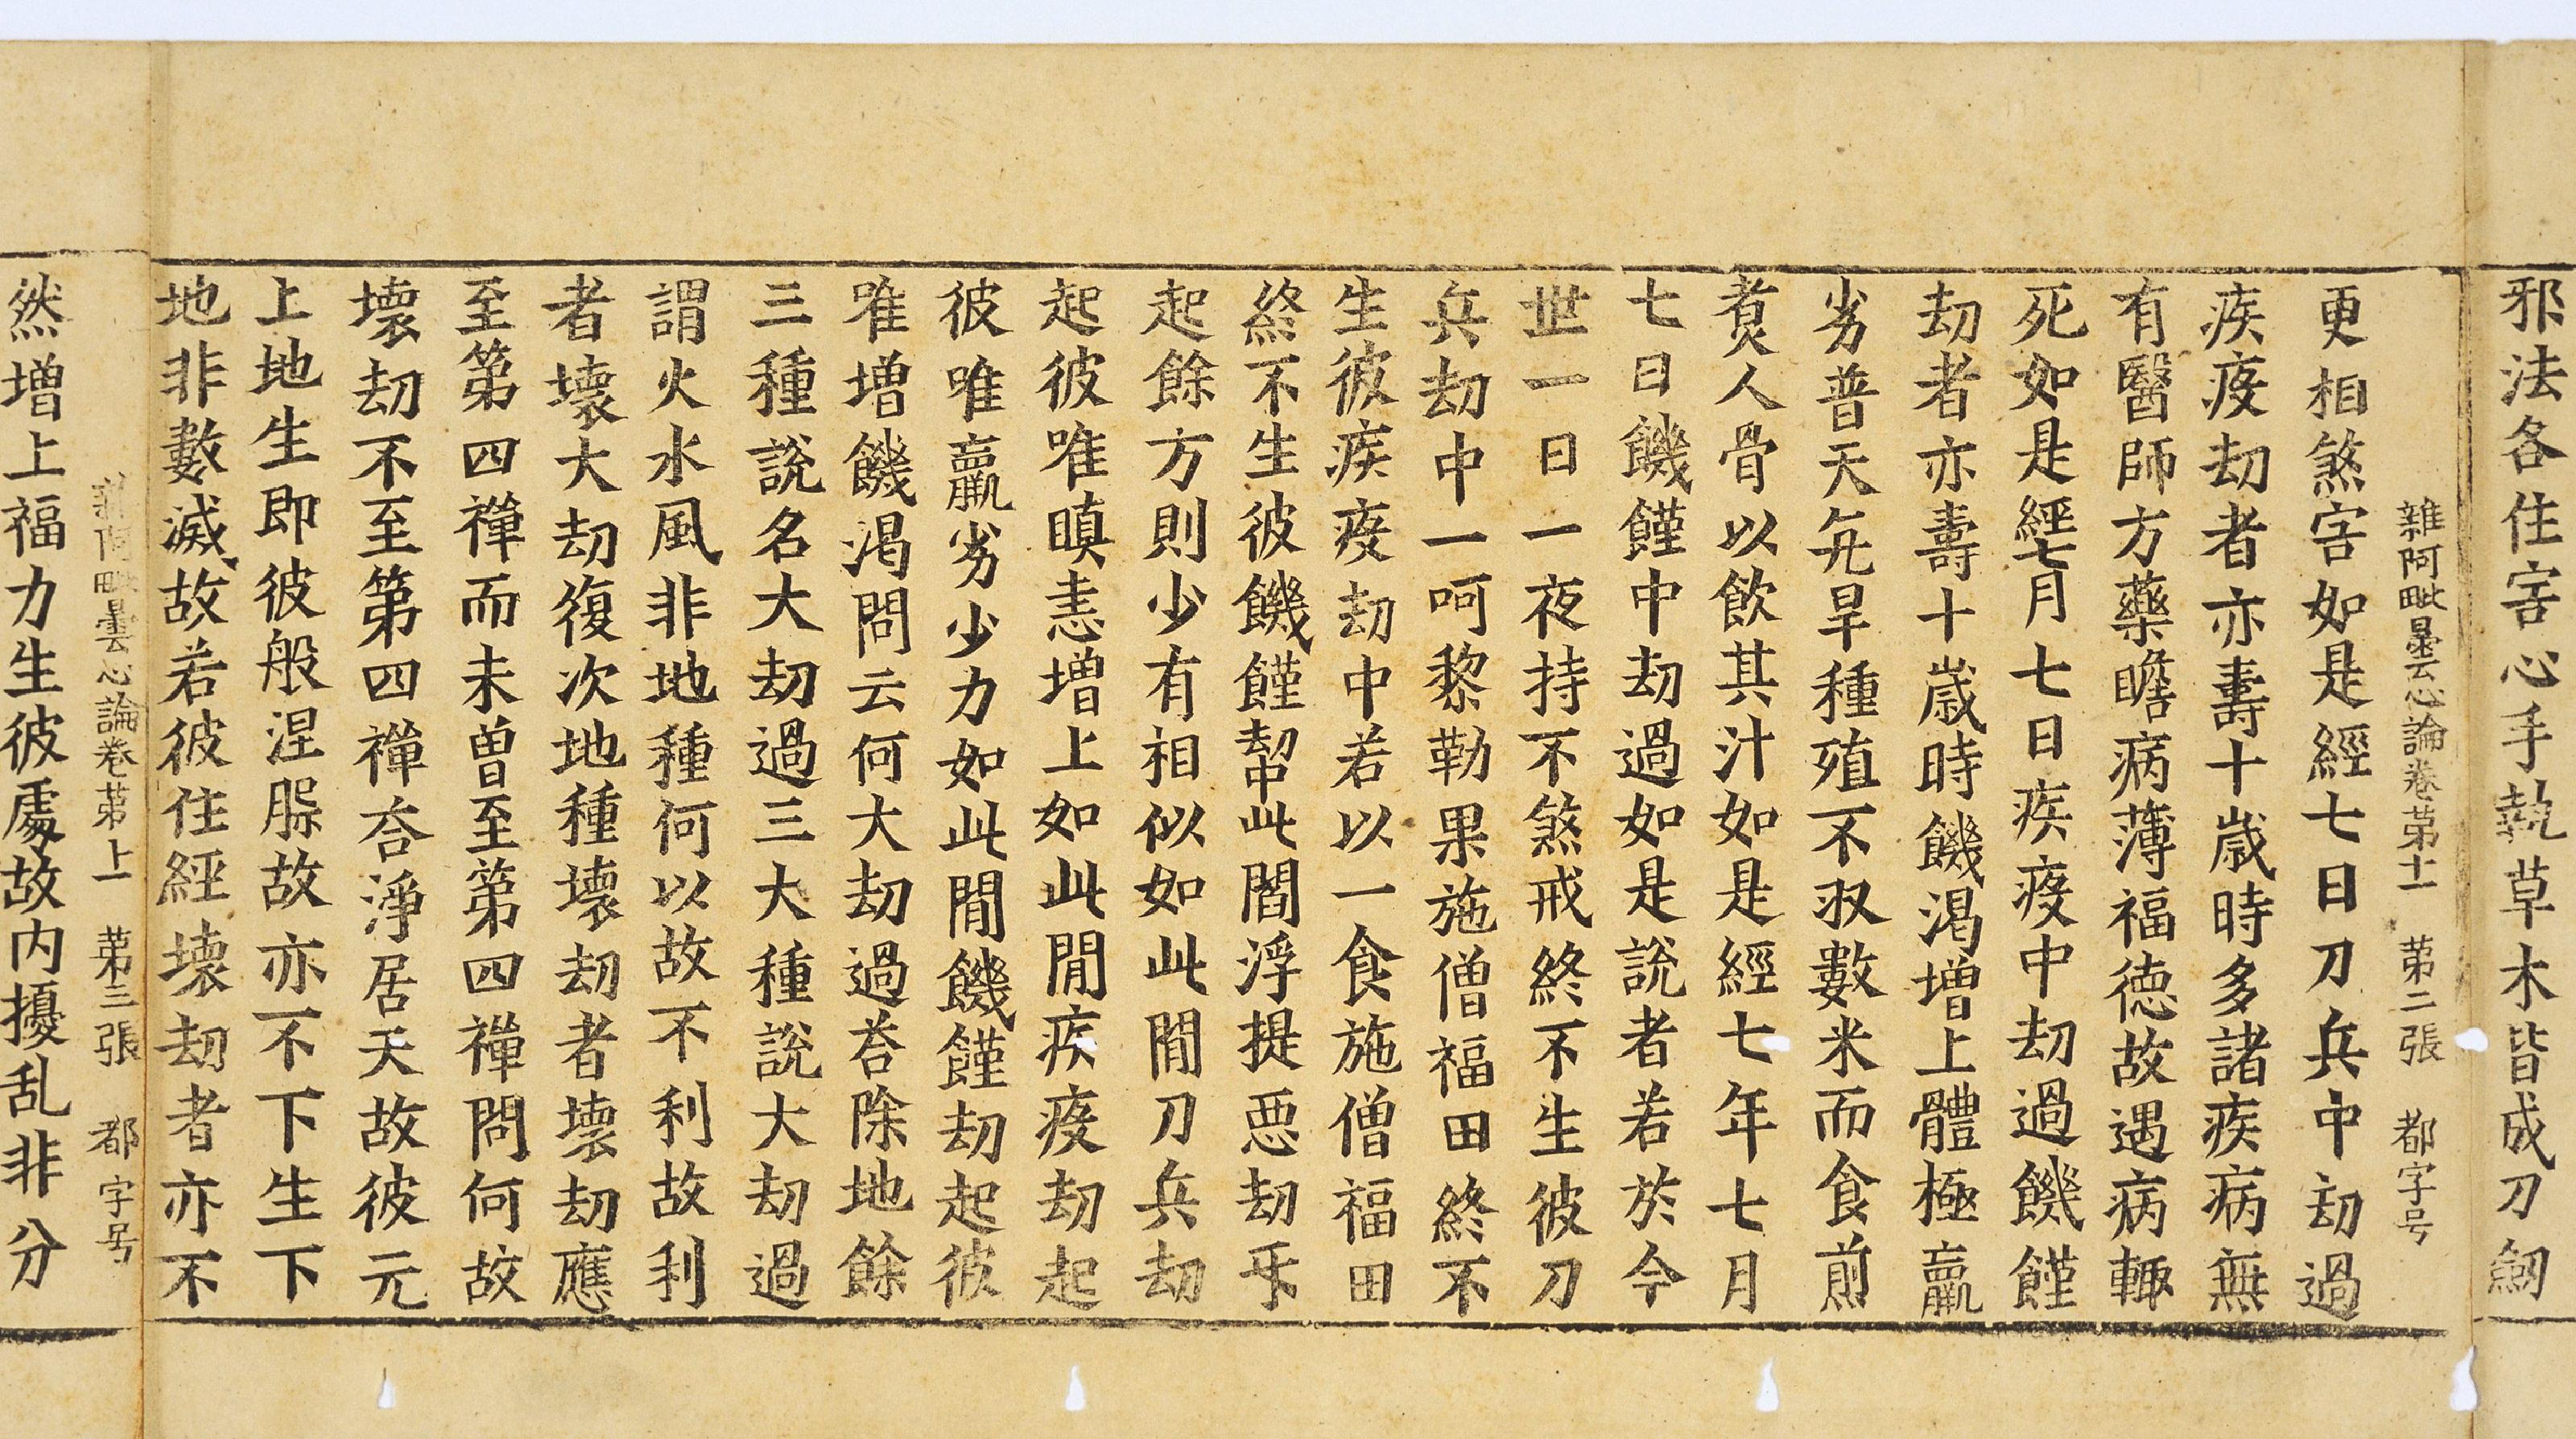 邪法各住害心手執草木皆成刀劒
雜阿毗曇心論卷第十一 第二張 都字号
更相煞害如是經七日刀兵中劫過
疾疫劫者亦壽十歲時多諸疾病無
有醫師方藥瞻病薄福德故遇病輙
死如是經七月七日疾疫中劫過饑饉
劫者亦壽十歲時饑渴增上體極羸
劣普天亢旱種殖不収數米而食煎
煑人骨以飲其汁如是經七年七月
七日饑饉中劫過如是說者若於今
世一日一夜持不煞戒終不生彼刀
兵劫中一呵黎勒果施僧福田終不
生彼疾疫劫中若以一食施僧福田
終不生彼饑饉劫中此閻浮提惡劫㸦
起餘方則少有相似如此間刀兵劫
起彼唯瞋恚增上如此間疾疫劫起
彼唯羸劣少力如此間饑饉劫起彼
唯增饑渴問云何大劫過荅除地餘
三種說名大劫過三大種說大劫過
謂火水風非地種何以故不利故利
者壞大劫復次地種壞劫者壞劫應
至第四禪而未曾至第四禪問何故
壞劫不至第四禪荅淨居天故彼元
上地生即彼般涅槃故亦不下生下
地非數滅故若彼住經壞劫者亦不
雜阿毗曇心論卷第十一 第三張 都字号
然增上福力生彼處故内擾乱非分